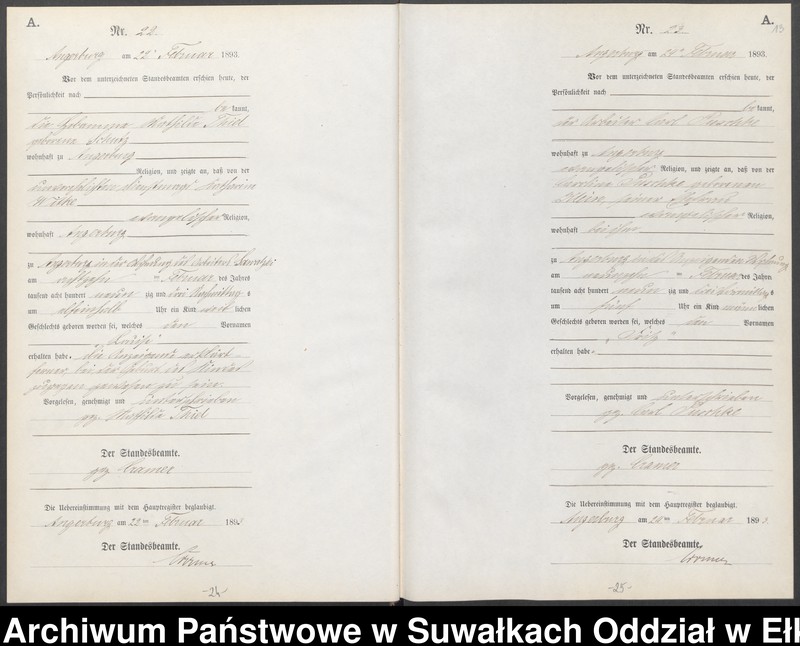 A.
Nr. 22.
Angerburg am 22ten Februar 1893.
Vor dem unterzeichneten Standesbeamten erschien heute, der
Persönlichkeit nach
be kannt,
die Hebamme Mathilde Thiel
geborene
wohnhaft zu Angerburg
Religion, und zeigte an, daß von der
unverehelichten Dienstmagd
evangelischer Religion,
wohnhaft Angerburg
zu Angerburg in der Behausung des Arbeiters
am Februar des Jahres
tausend acht hundert neun zig und drei Nachmittags
um Uhr ein Kind weib lichen
Geschlechts geboren worden sei, welches den Vornamen
"Louise"
erhalten habe. die Anzeigende erklärt
ferner bei der Geburt des Kindes
zugegen gewesen zu sein.
Vorgelesen, genehmigt und unterschrieben
gez. Mathilde Thiel
Der Standesbeamte.
gez. Cramer
Die Uebereinstimmung mit dem Hauptregister beglaubigt.
Angerburg am 22ten Februar 1893
Der Standesbeamte.
Cramer
-24-
A.
13
Nr. 23.
Angerburg am 24ten Februar 1893.
Vor dem unterzeichneten Standesbeamten erschien heute, der
Persönlichkeit nach
be kannt,
der Arbeiter Carl Puschke
wohnhaft zu Angerburg
evangelischer Religion, und zeigte an, daß von der
Caroline Puschke geborenen
seiner Ehefrau
evangelischer Religion,
wohnhaft bei ihm
zu Angerburg in des Anzeigenden Wohnung
am Februar des Jahres
tausend acht hundert neun zig und drei Vormittags
um fünf Uhr ein Kind männ lichen
Geschlechts geboren worden sei, welches den Vornamen
"Fritz"
erhalten habe
Vorgelesen, genehmigt und unterschrieben
gez. Carl Puschke
Der Standesbeamte.
gez. Cramer
Die Uebereinstimmung mit dem Hauptregister beglaubigt.
Angerburg am 24ten Februar 1893.
Der Standesbeamte.
Cramer
-25-
Archiwum Państwowe w Suwałkach Oddział w Ełk